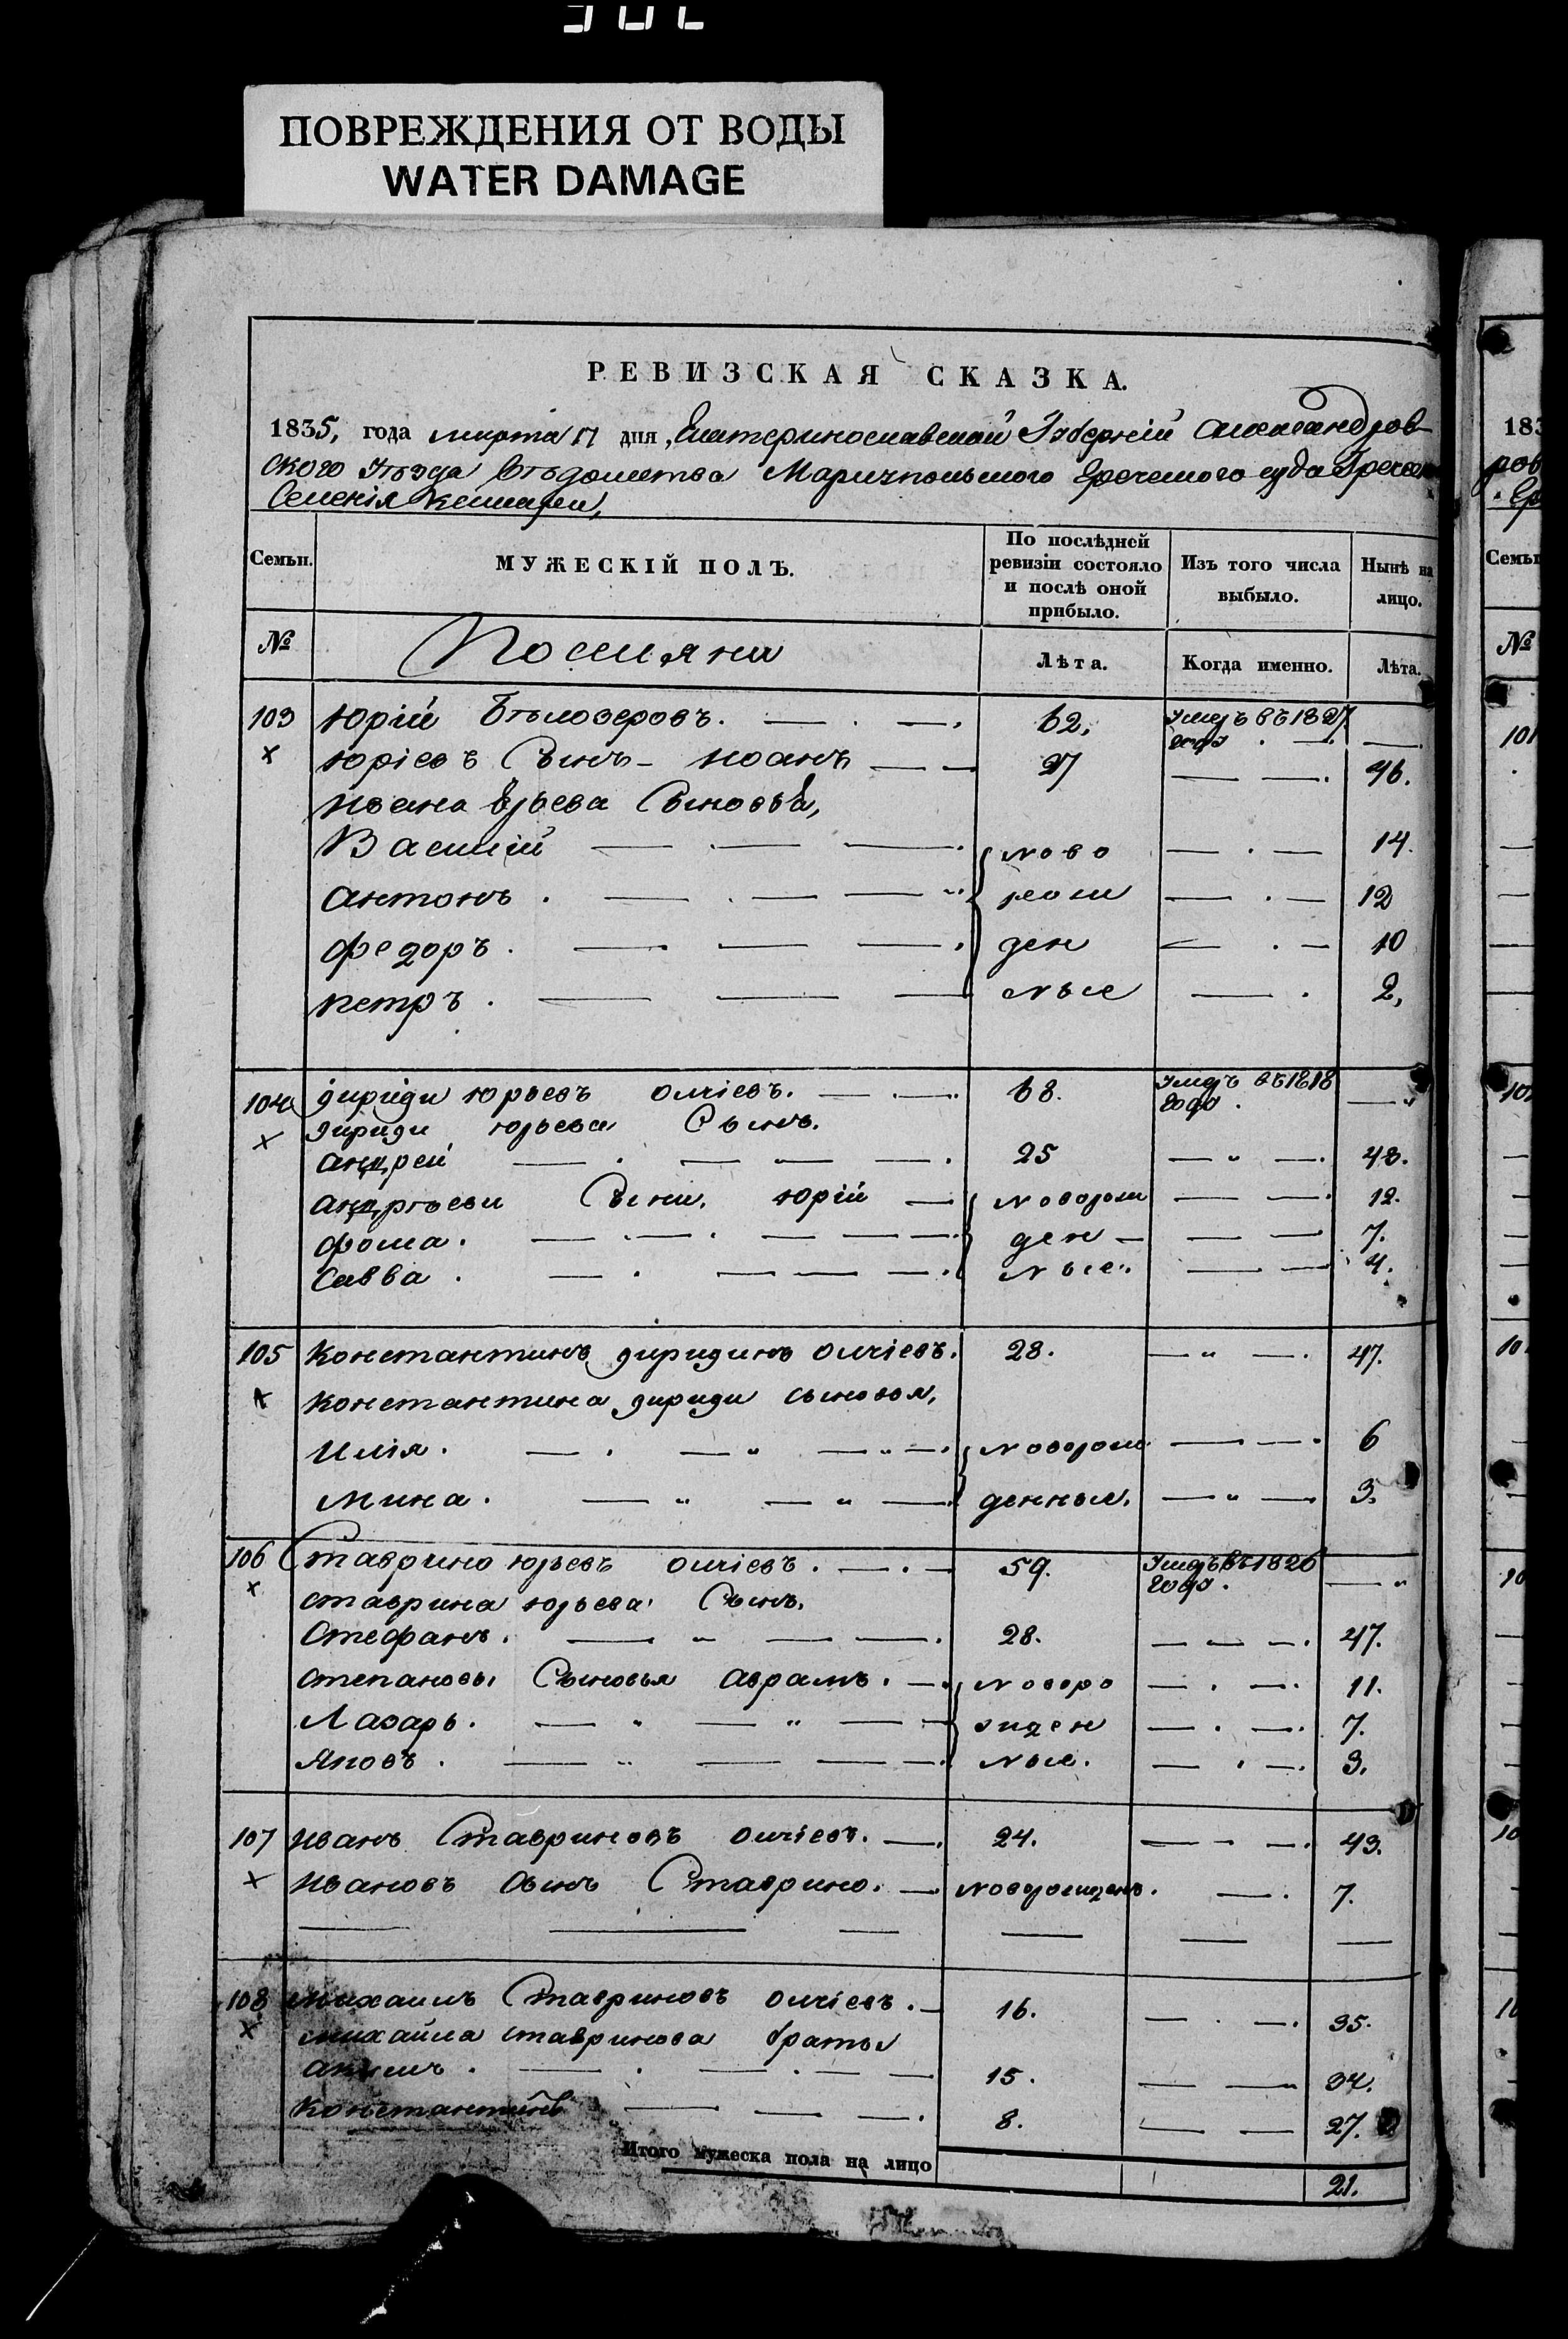 ПОВРЕЖДЕНИЯ ОТ ВОДЫ
WATER DAMAGE
РЕВИЗСКАЯ СКАЗКА.
1835, года марта 17 дня, Екатеринославской Губерніи Александров-
ского Уѣзда Вѣдомства Мариупольского Греческого суда Греческ
Селенія
Семьи. МУЖЕСКІЙ ПОЛЪ. По послѣдней ревизіи состояло и послѣ оной прибыло. Изъ того числа выбыло. Нынѣ на лицо.
№ Поселяни Лѣта. Когда именно. Лѣта.
103 Юрій Бѣлозеровъ. 62. Умеръ въ 1827 году
х Юріевъ Сынъ Иоанъ 27 46.
Ивана Юрьева Сыновья,
Василій ново 14.
Антонъ. рож 12
Федоръ. ден 10
Петръ. ные 2,
104 Дириди Юрьевъ Олчіевъ. 68. Умеръ въ 1818 году.
х Дириди Юрьева Сынъ.
Андрей 25 43.
Андрѣеви Сыни. Юрій новорож 12.
Фома. ден 7.
Савва. ные. 4.
105 Константинъ Диридинъ Олчіевъ. 28. 47.
х Константина Дириди сыновья,
Илія. новорож 6
Мина. денные. 3.
106 Ставрино Юрьевъ Олчіевъ. 59. Умеръ въ 1826 году.
х Ставрина Юрьева Сынъ.
Стефанъ. 28. 47.
Степановы Сыновья Аврамъ. новоро 11.
Лазарь. жден 7.
Яковъ. ные. 3.
107 Иванъ Ставриновъ Олчіевъ. 24. 43.
х Ивановъ сынъ Ставрино. новорожденъ. 7.
108 Михаилъ Ставриновъ Олчіевъ. 16. 35.
х Михайла Ставринова братья
Акимъ. 15. 34.
Константинъ 8. 27.
Итого мужеска пола на лицо 21.